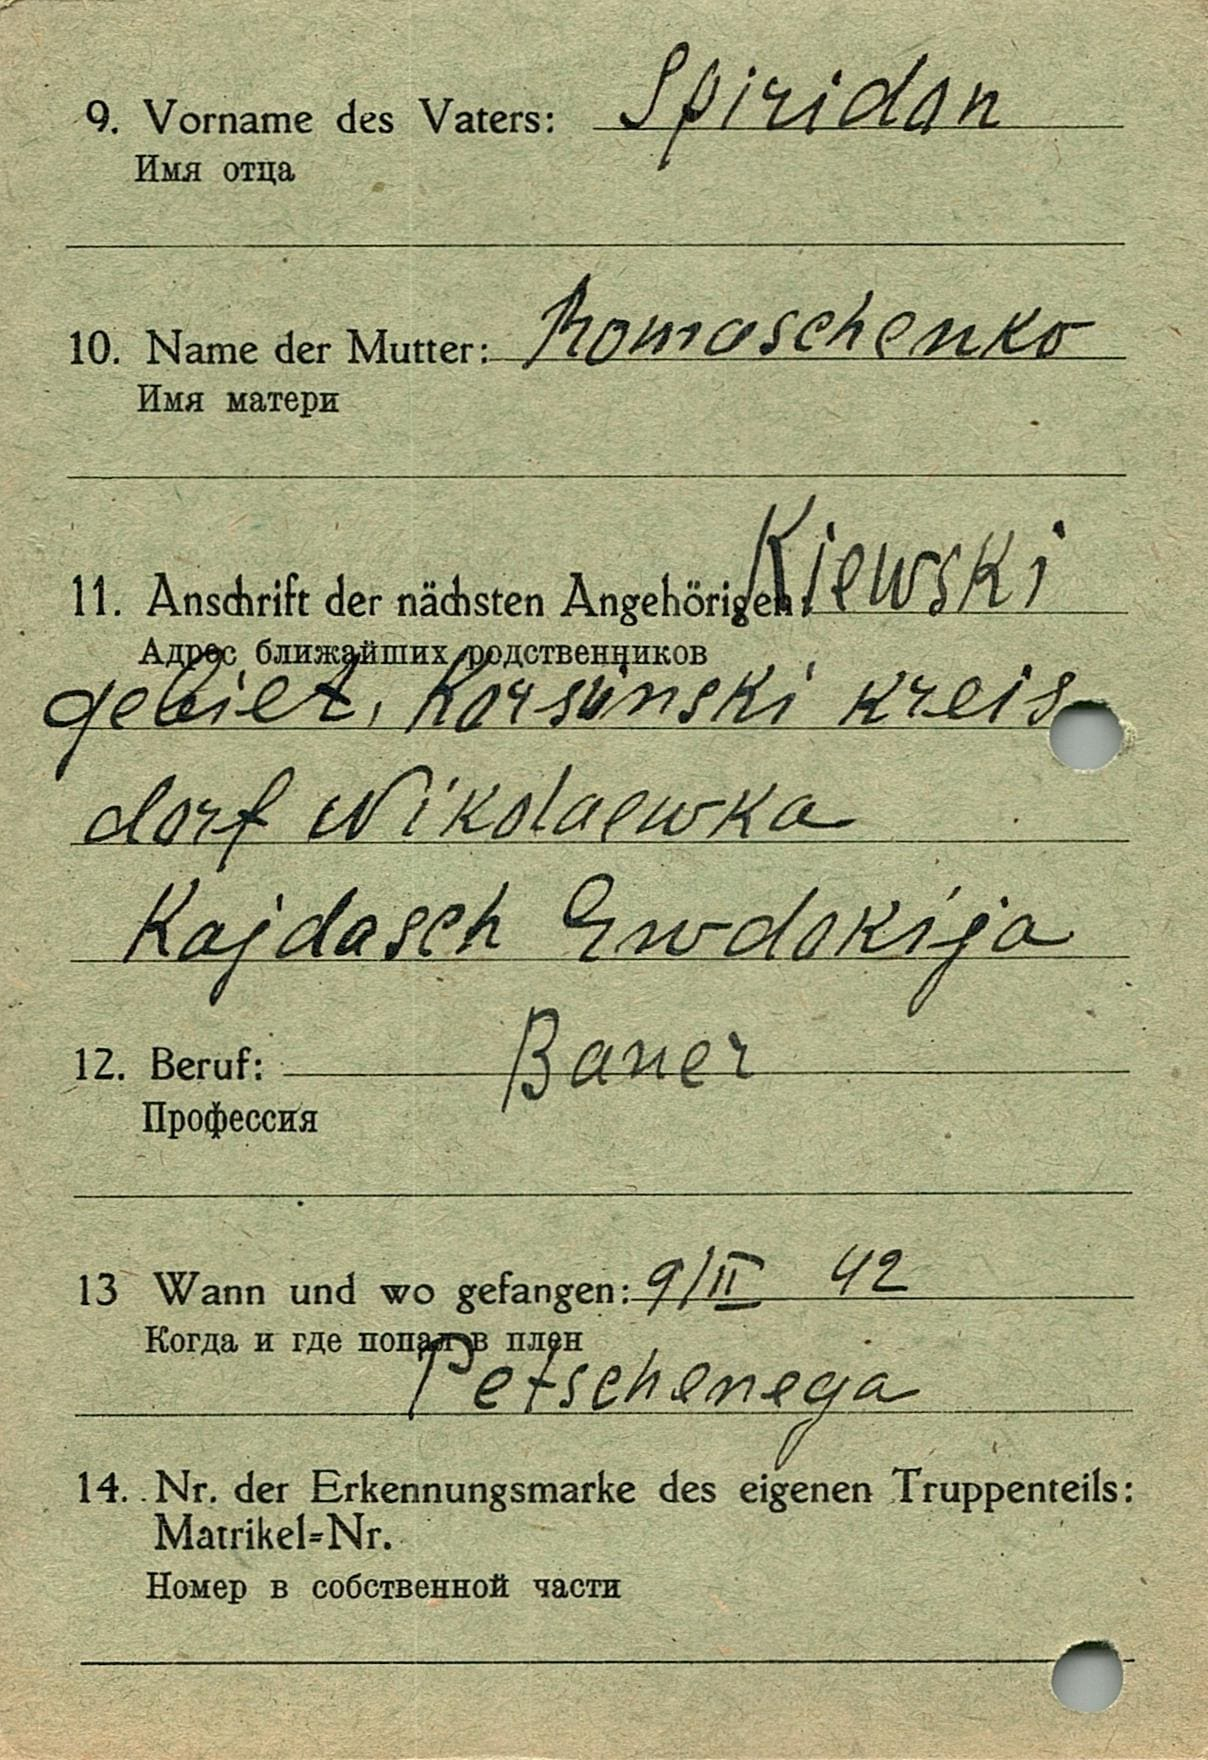 9. Vorname des Vaters: Spiridan
Имя отца
10. Name der Mutter: Romaschenko
Имя матери
11. Anschrift der nächsten Angehörigen: Kiewski
Адрес ближайших родственников
gebiet, Korsunski kreis
dorf Nikolaewka
Kajdasch Ewdokija
12. Beruf: Bauer
Профессия
13 Wann und wo gefangen: 9/II 42
Когда и где попал в плен
Petschenega
14. Nr. der Erkennungsmarke des eigenen Truppenteils:
Matrikel-Nr.
Номер в собственной части